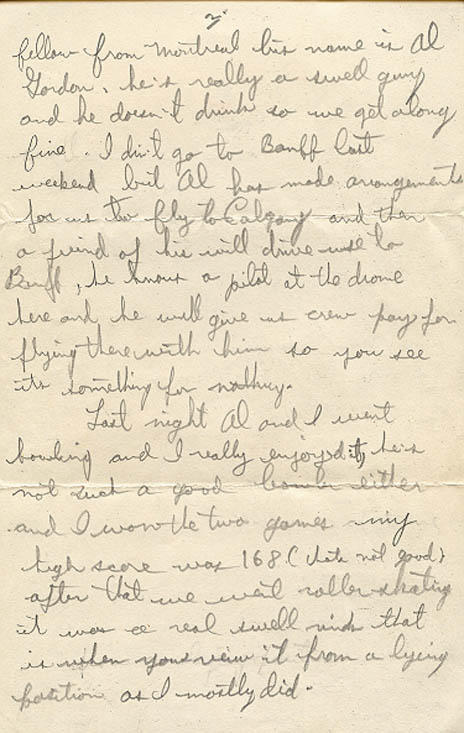 2.
fellow from Montreal his name is Al
Gordon, he's really a swell guy
and he doesn't drink so we get along
fine. I din't go to Banff last
weekend but Al has made arrangements
for us to fly to Calgary and then
a friend of his will drive use to
Banff, he knows a pilot at the drome
here and he will give us crew pay for
flying there with him so you see
its something for nothing.
Last night Al and I went
bowling and I really enjoyed it, he's
not such a good bowler either
and I won the two games my
high score was 168 (thats not good)
after that we went roller skating
it was a real swell rink that
is when you view it from a lying
position as I mostly did.